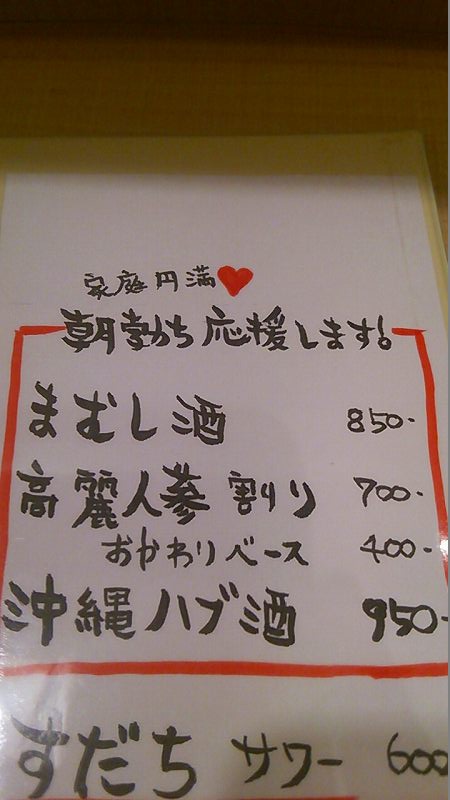 家庭円満♥
朝勃ち応援します!
まむし酒 850-
高麗人蔘割り 700-
おかわりベース 400-
沖縄ハブ酒 950-
すだちサワー 600